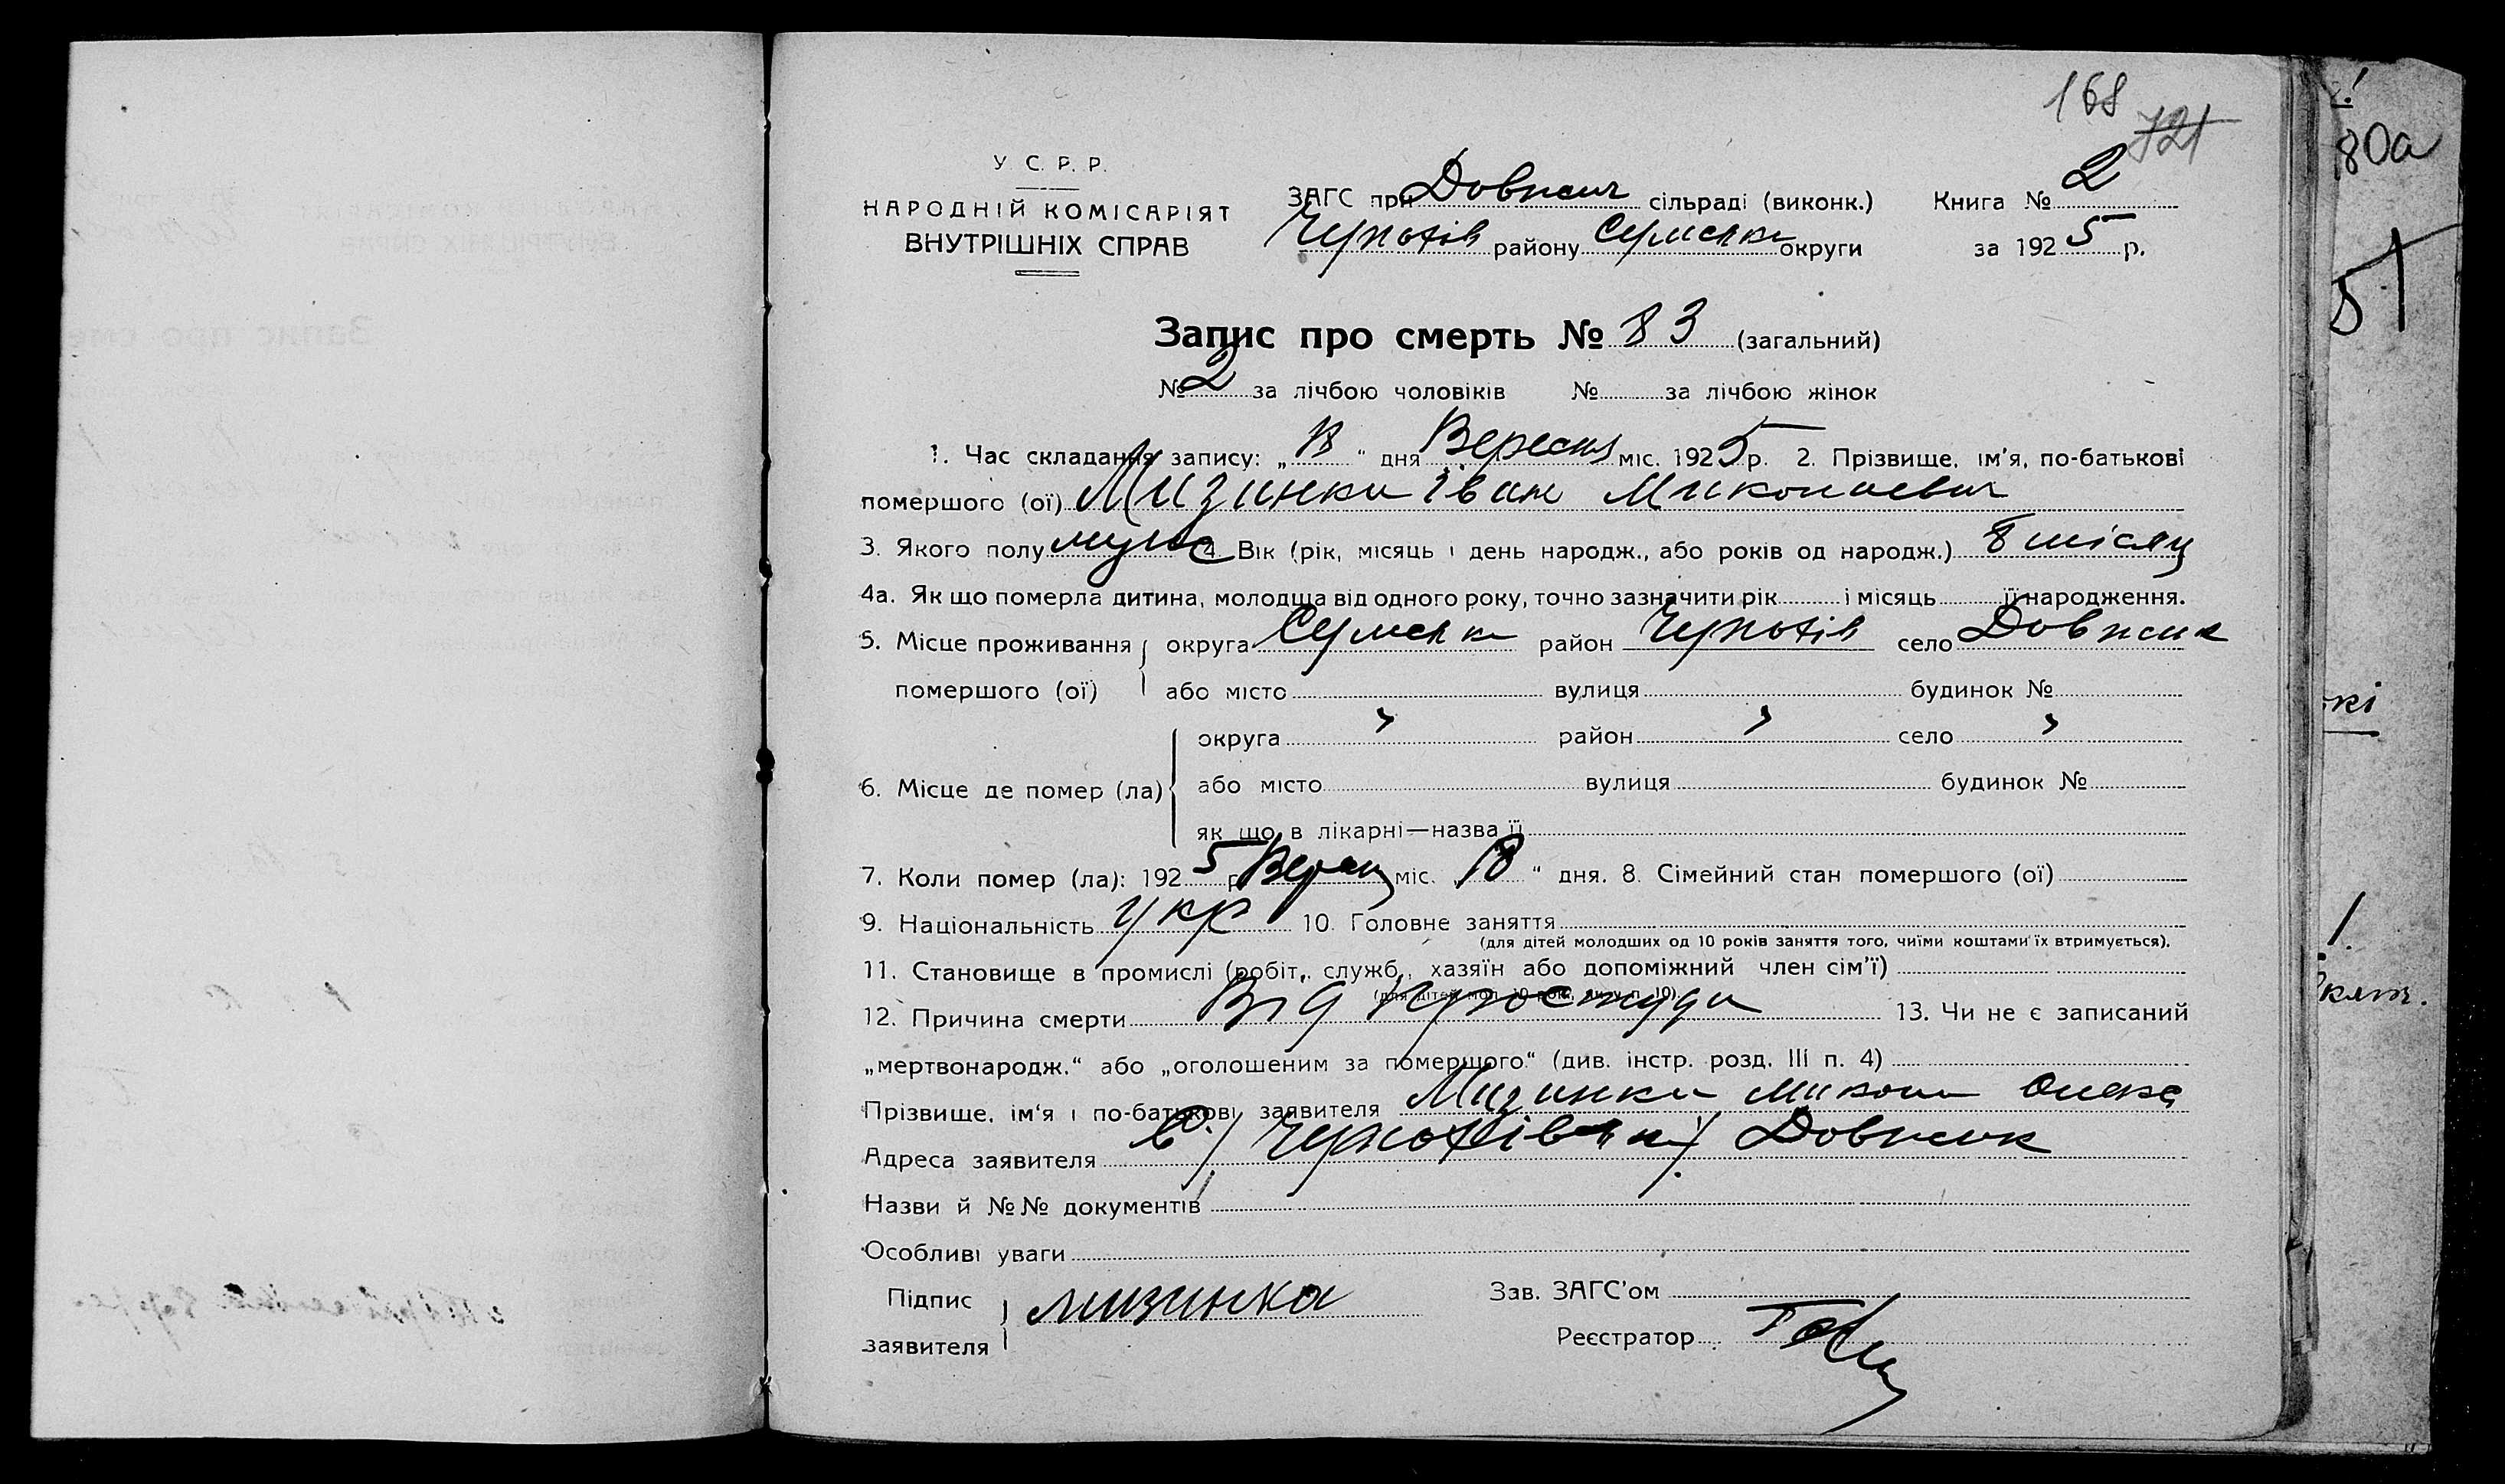 168
721
У. С. Р. Р.
НАРОДНІЙ КОМІСАРІЯТ
ВНУТРІШНІХ СПРАВ
ЗАГС при Довжич сільраді (виконк.) Книга № 2
Чернотів району Сумська округи за 1925 р.
Запис про смерть № 83 (загальний)
№ 2 за лічбою чоловіків № за лічбою жінок
1. Час складання запису: „18“ дня Вересня міс. 1925 р. 2. Прізвище, ім'я, по-батькові
помершого (ої) Мизинка Іван Миколаевич
3. Якого полу муж 4. Вік (рік, місяць і день народж., або років од народж.) 8 місяц
4а. Як що померла дитина, молодща від одного року, точно зазначити рік і місяць її народження.
5. Місце проживання округа Сумська район село Довжик
помершого (ої) або місто вулиця будинок №
округа " район " село "
6. Місце де помер (ла) або місто вулиця будинок №
як що в лікарні—назва її
7. Коли помер (ла): 1925 р. міс. 18 “ дня. 8. Сімейний стан помершого (ої)
9. Національність укр 10. Головне заняття
(для дітей молодших од 10 років заняття того, чиїми коштами їх втримується).
11. Становище в промислі (робіт., служб., хазяїн або допоміжний член сім'ї)
(для дітей мол. 10 років, див. п. 10).
12. Причина смерти Від простуди 13. Чи не є записаний
„мертвонародж.“ або „оголошеним за помершого“ (див. інстр. розд. III п. 4)
Прізвище, ім'я і по-батькові заявителя Мизинка Микола
Адреса заявителя Довжик
Назви й №№ документів
Особливі уваги
Підпис заявителя мизинка Зав. ЗАГС'ом
Реєстратор
80а
51